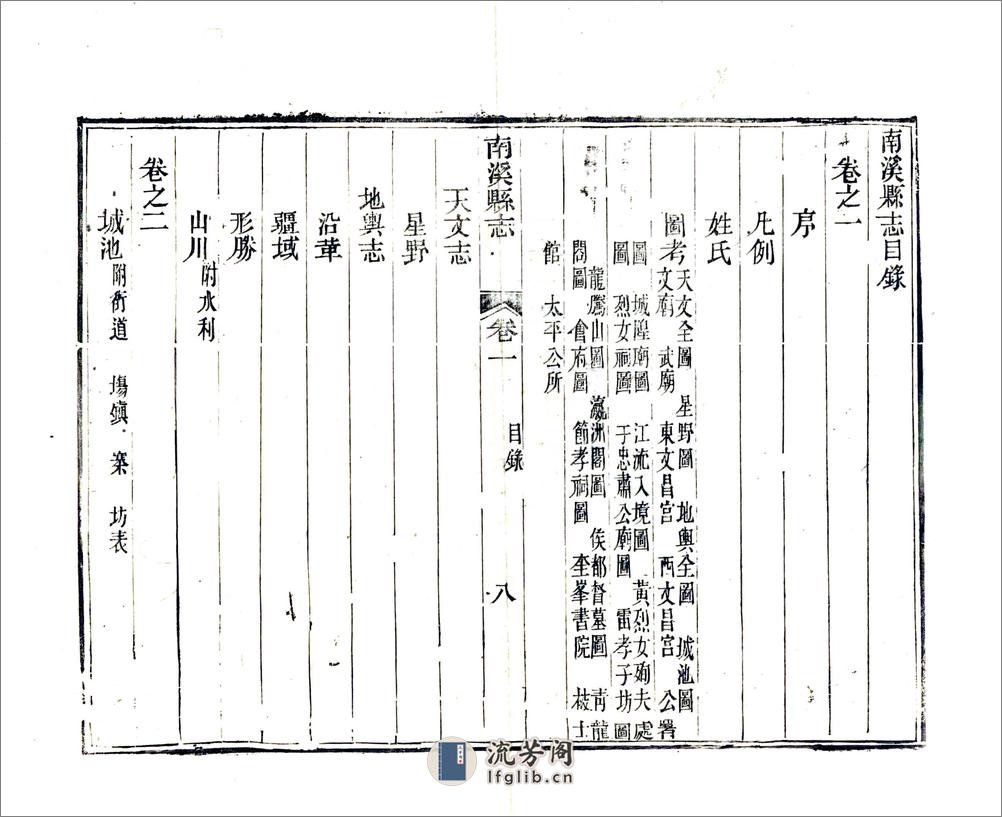 南溪縣志目錄
卷之一
序
凡例
姓氏
圖考 天文全圖 星野圖 地輿全圖 城池圖
文廟 武廟 東文昌宮 西文昌宮 公署
圖 城隍廟圖 江流入境圖 黃烈女殉夫處
圖 烈女祠圖 于忠肅公廟圖 雷孝子坊圖
龍騰山圖 瀛洲閣圖 侯都督墓圖 青龍
閣圖 會府圖 節孝祠圖 奎峯書院 校士
館 太平公所
南溪縣志 卷一 目錄 八
天文志
星野
地輿志
沿革
疆域
形勝
山川 附水利
卷之二
城池 附街道 場鎮 寨 坊表
流芳阁
lfglib.cn